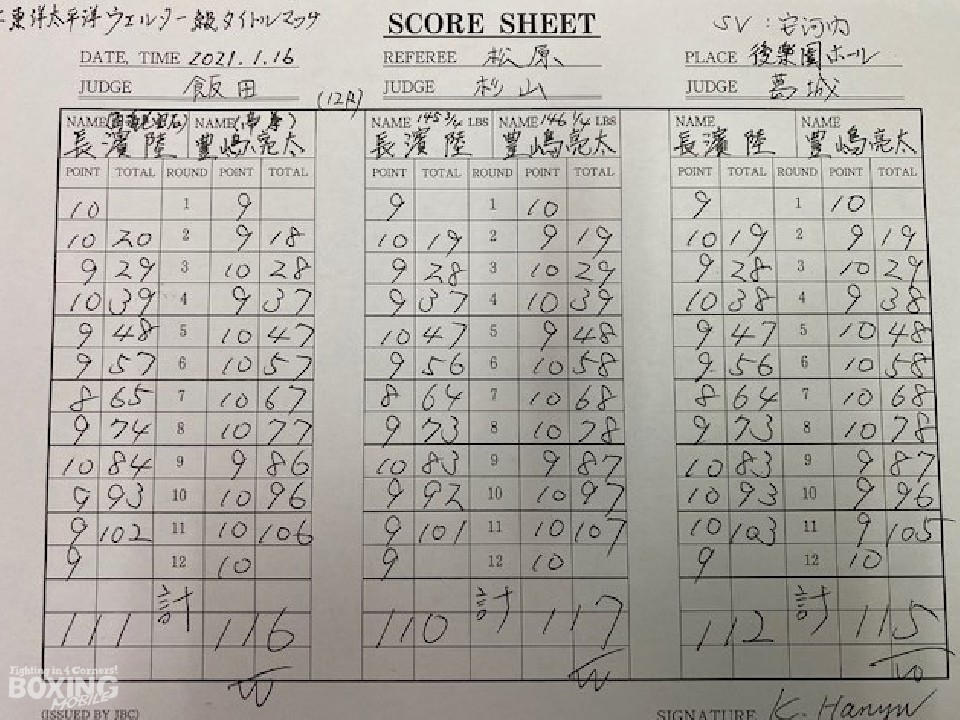 東洋太平洋ウェルター級タイトルマッチ SCORE SHEET SV:安河内
DATE, TIME 2021.1.16 REFEREE 松原 PLACE 後楽園ホール
JUDGE 飯田 (12R) JUDGE 杉山 葛城
NAME NAME (帝拳) NAME 145 3/4 LBS NAME 146 1/4 LBS NAME NAME
長濱陸 豊嶋亮太 長濱陸 豊嶋亮太 長濱陸 豊嶋亮太
POINT TOTAL ROUND POINT TOTAL POINT TOTAL ROUND POINT TOTAL POINT TOTAL ROUND POINT TOTAL
10 1 9 9 1 10 9 1 10
10 20 2 9 18 10 19 2 9 19 10 19 2 9 19
9 29 3 10 28 9 28 3 10 29 9 28 3 10 29
10 39 4 9 37 9 37 4 10 39 10 38 4 9 38
9 48 5 10 47 10 47 5 9 48 9 47 5 10 48
9 57 6 10 57 9 56 6 10 58 9 56 6 10 58
8 65 7 10 67 8 64 7 10 68 8 64 7 10 68
9 74 8 10 77 9 73 8 10 78 9 73 8 10 78
10 84 9 9 86 10 83 9 9 87 10 83 9 9 87
9 93 10 10 96 9 92 10 10 97 10 93 10 9 96
9 102 11 10 106 9 101 11 10 107 10 103 11 9 105
9 12 10 9 12 10 9 12 10
111 計 116 110 計 117 112 計 115
W W W
Fighting in 4 Corners!
BOXING
MOBILE
(ISSUED BY JBC) SIGNATURE K. Hanyu